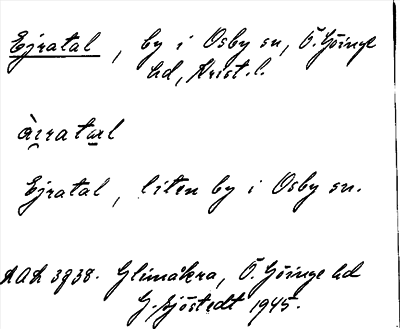 Ejratal, by i Osby sn, Ö. Göinge
hd, Krist. l.
Ejratal, liten by i Osby sn.
LAL 3938. Glimåkra, Ö. Göinge hd
G. Sjöstedt 1945.